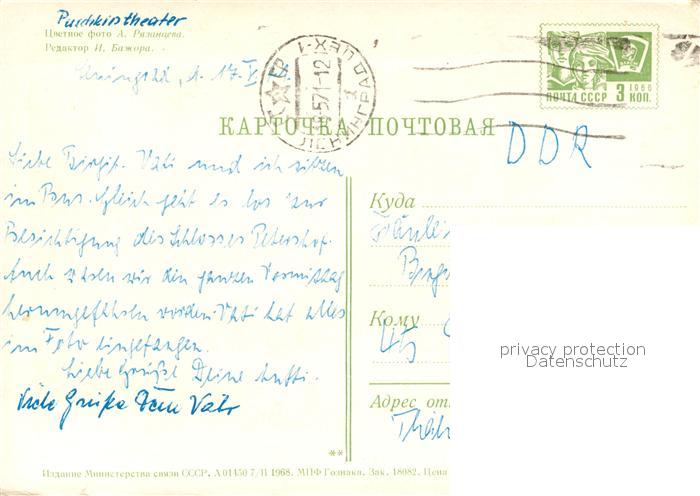 Puschkintheater
Цветное фото А. Рязанцева.
Редактор И. Бажора.
ПОЧТА СССР 1966 3 КОП.
КАРТОЧКА ПОЧТОВАЯ
DDR
Liebe Birgit. Vati und ich sitzen
im Bus. Gleich geht es los zur
Besichtigung des Schlosses Petershof.
Auch haben wir den ganzen Vormittag
herumgefahren worden. Vati hat alles
im Foto eingefangen.
Liebe Grüße Deine Mutti.
Viele Grüße Dein Vati
Куда
Кому
Адрес от
privacy protection
Datenschutz
**
Издание Министерства связи СССР. А 01450 7/II 1968. МПФ Гознака. Зак. 18082. Цена